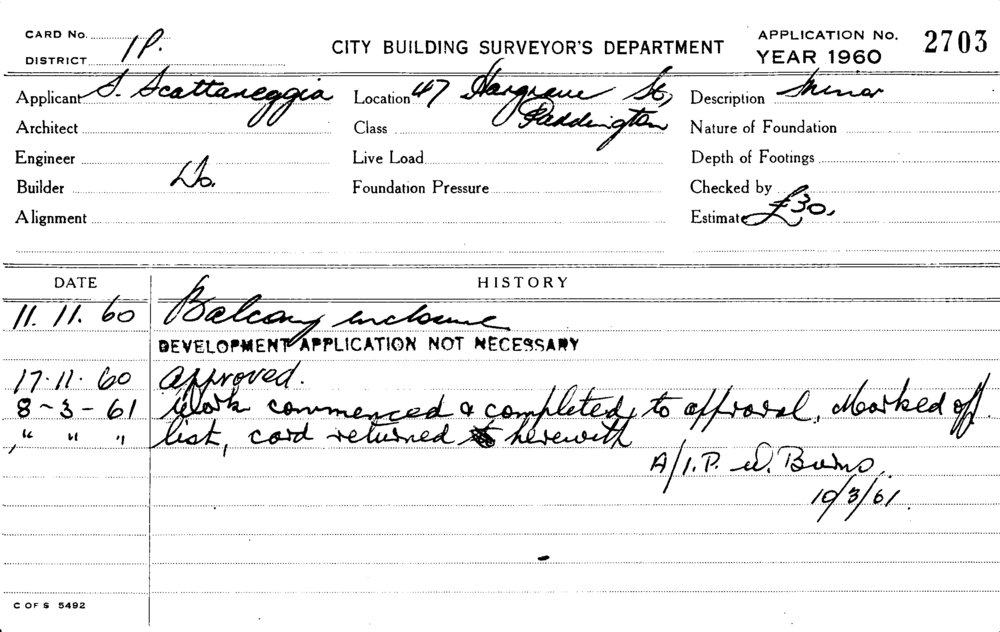 CARD No.
DISTRICT 1P.
CITY BUILDING SURVEYOR'S DEPARTMENT
APPLICATION No. 2703
YEAR 1960
Applicant S. Scattareggia Location 47 Hargrave St, Description Minor
Paddington
Architect Class Nature of Foundation
Engineer Live Load Depth of Footings
Builder Do. Foundation Pressure Checked by
Alignment Estimate £30.
DATE HISTORY
11. 11. 60 Balcony enclosure
DEVELOPMENT APPLICATION NOT NECESSARY
17. 11. 60 approved.
8 - 3 - 61 Work commenced & completed, to approval. Marked off
" " " list, card returned herewith
A/I.P. W. Burns.
10/3/61.
C OF S 5492